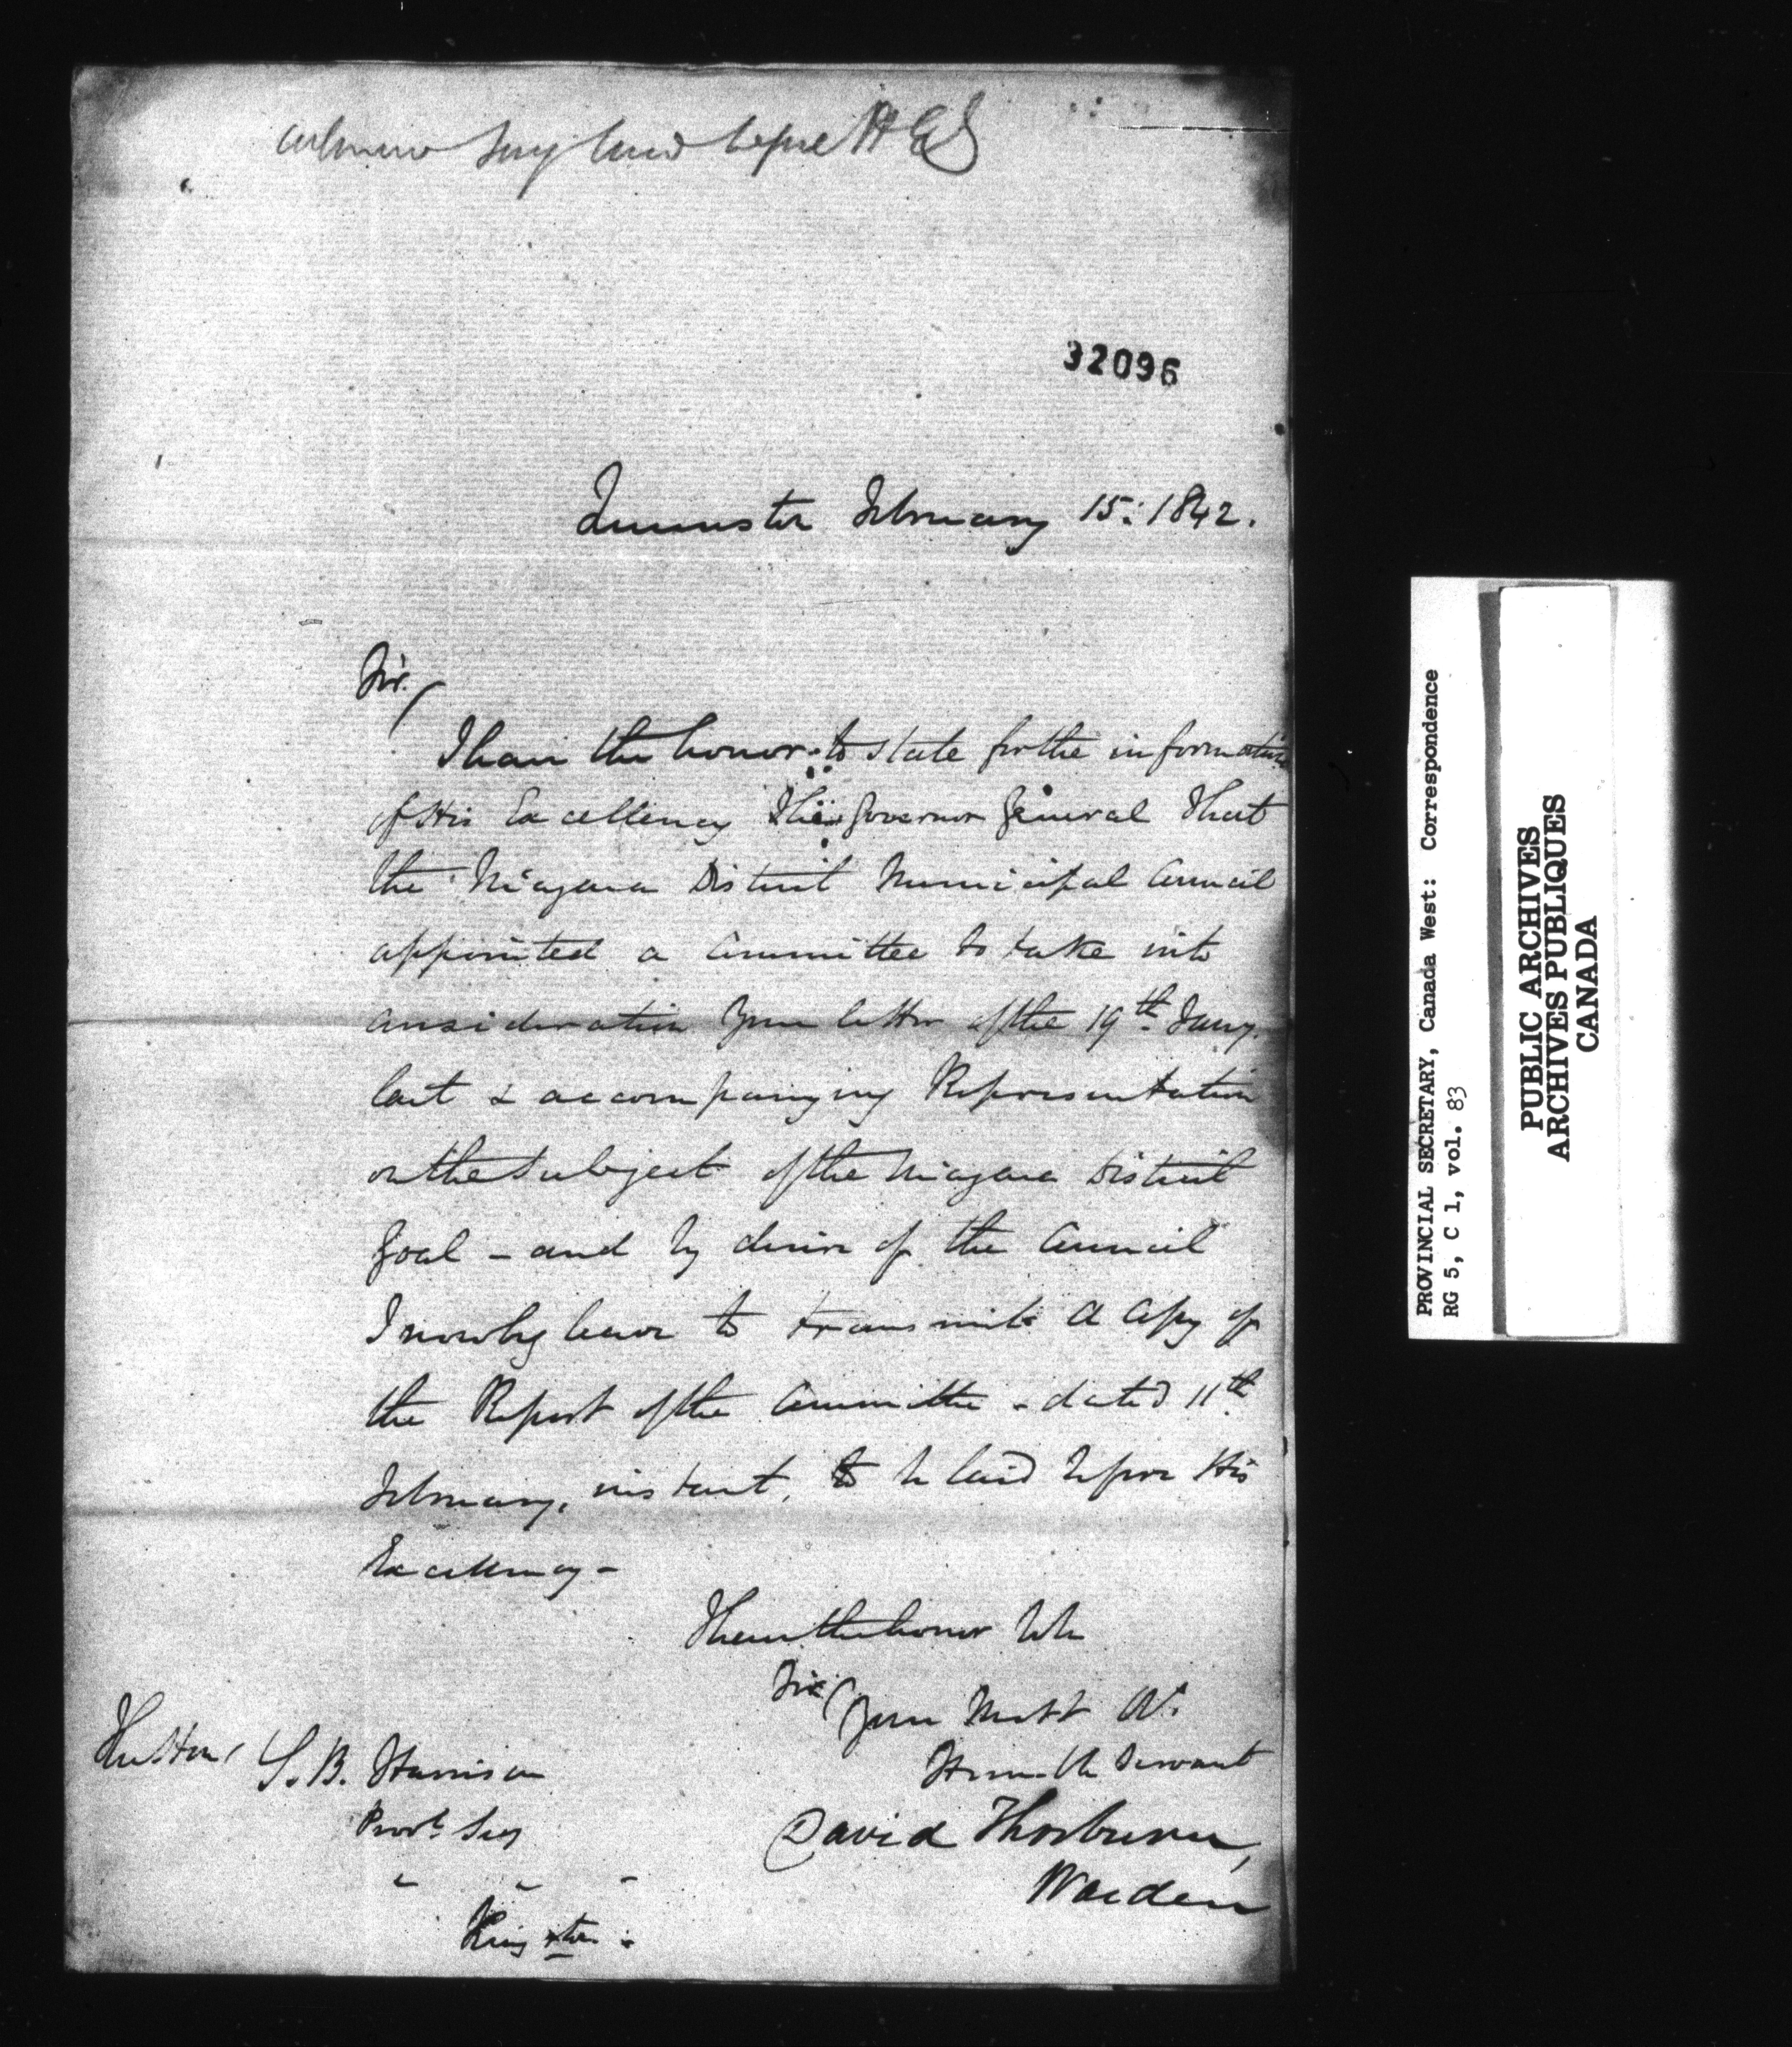 laid before H E
32096
Queenston February 15: 1842.
Sir.
I have the honor to state for the information
of His Excellency The Governor General That
the Niagara District Municipal Council
appointed a Committee to take into
consideration Your letter of the 19th Jany.
last & accompanying Representation
on the Subject of the Niagara District
Goal - and by desire of the Council
I now beg leave to transmit a Copy of
the Report of the Committee - dated 11th
February, instant, to be laid before His
Excellency -
I have the honor to be
Sir
Your Most Ot.
Humble Servant
David Thorburn,
Warden
The Hon.
S. B. Harrison
Provl. Secy
" " "
Kingston
PROVINCIAL SECRETARY, Canada West: Correspondence
RG 5, C 1, vol. 83
PUBLIC ARCHIVES
ARCHIVES PUBLIQUES
CANADA